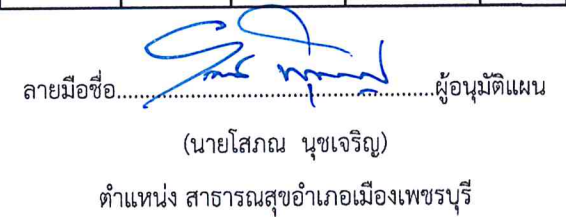 ลายมือชื่อ............................................................ผู้อนุมัติแผน
(นายโสภณ นุชเจริญ)
ตำแหน่ง สาธารณสุขอำเภอเมืองเพชรบุรี